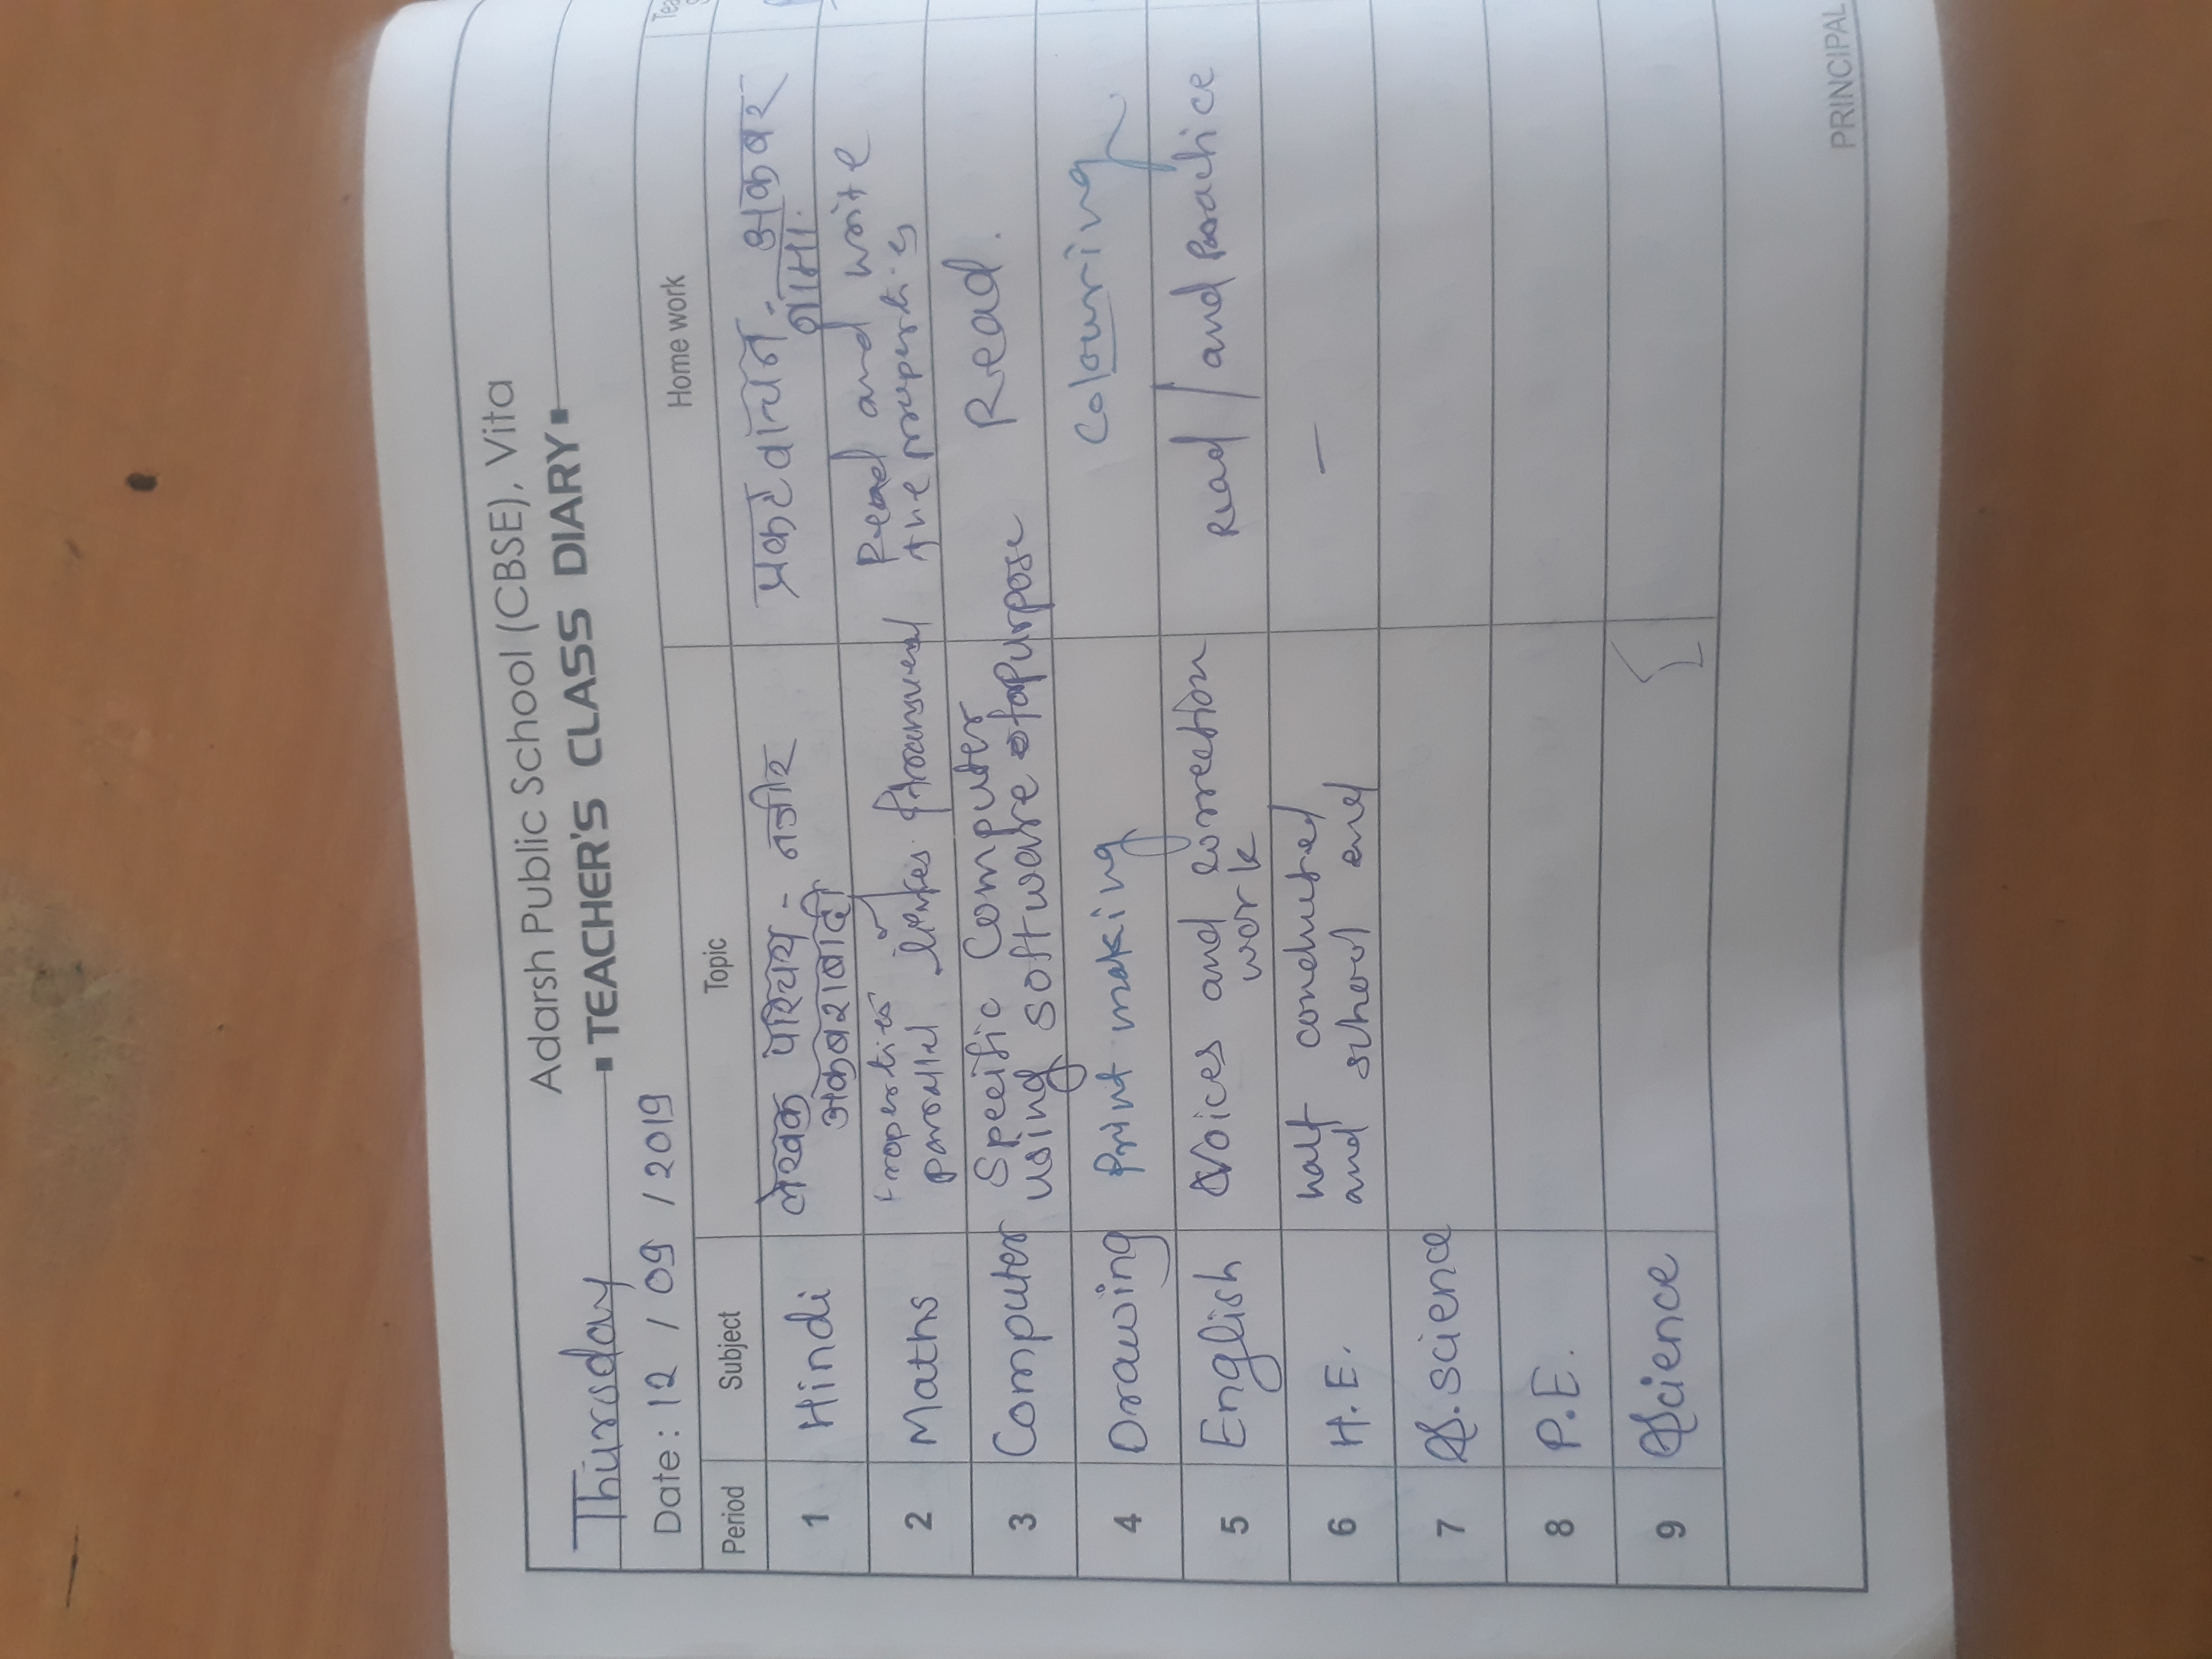 Adarsh Public School (CBSE), Vita
TEACHER'S CLASS DIARY
Thursday
Date: 12 / 09 / 2019
Period Subject Topic Home work
1 Hindi लेखक परिचय - नजीर प्रकट वाचन - अकबर
अकबराबादी नामा.
2 Maths Properties of Read and write
parallel lines transversal the properties
3 Computer Specific Computer Read.
using software of purpose
4 Drawing Print making Colouring
5 English Voices and correction Read / and Practice
work
6 H.E. half conducted –
and school end
7 S.science
8 P.E.
9 Science
PRINCIPAL